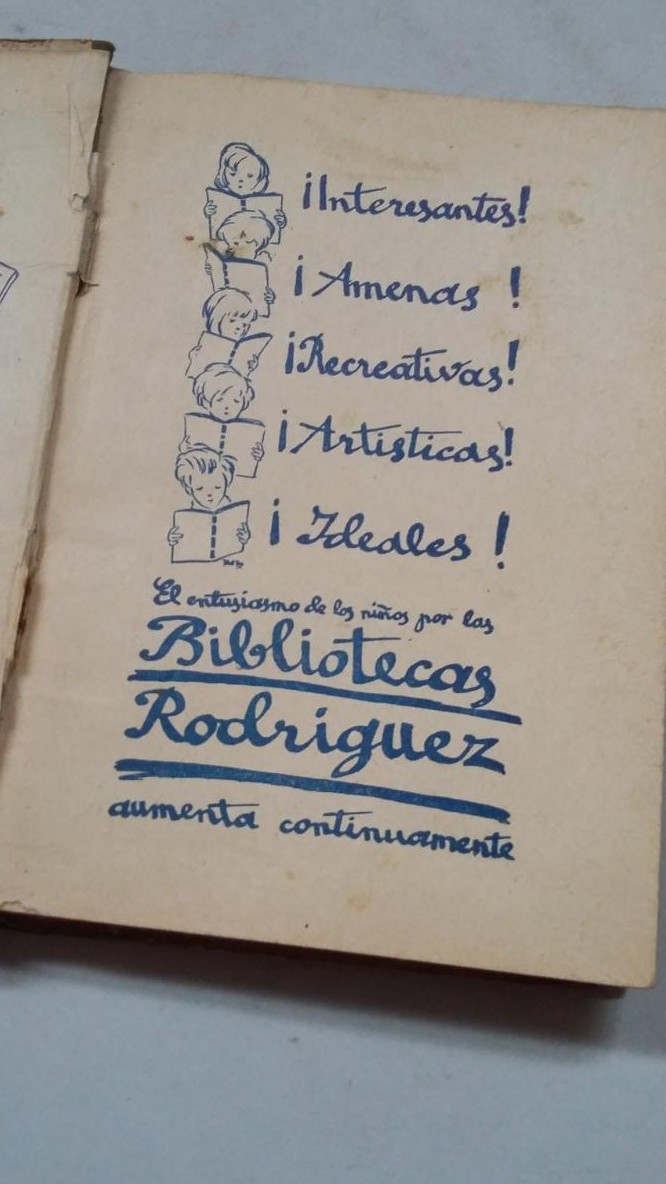 ¡Interesantes!
¡Amenas!
¡Recreativas!
¡Artisticas!
¡Ideales!
El entusiasmo de los niños por las
Bibliotecas
Rodriguez
aumenta continuamente